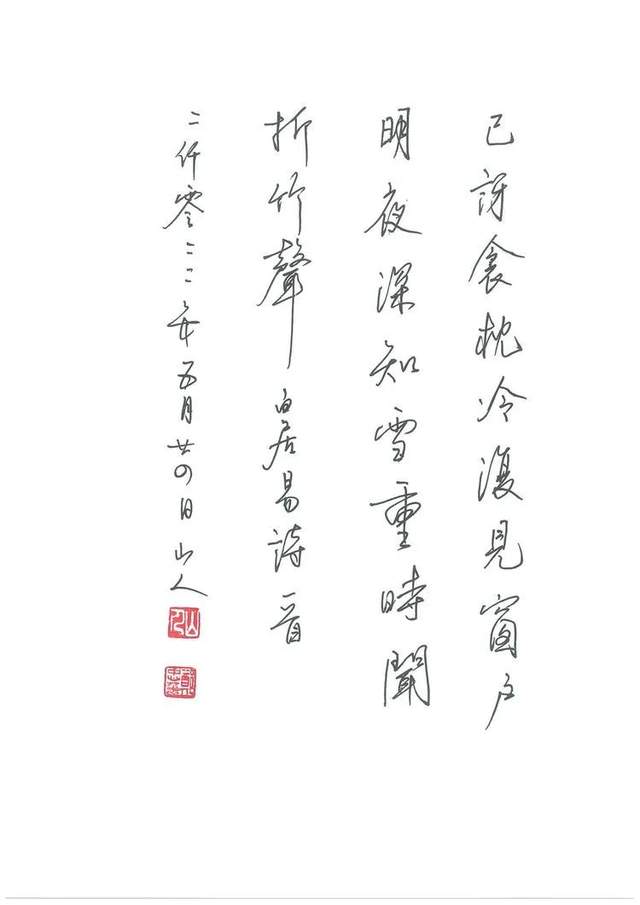 已訝衾枕冷復見窗户
明夜深知雪重時聞
折竹聲 白居易詩一首
二仟零二二年五月廿四日山人
山人